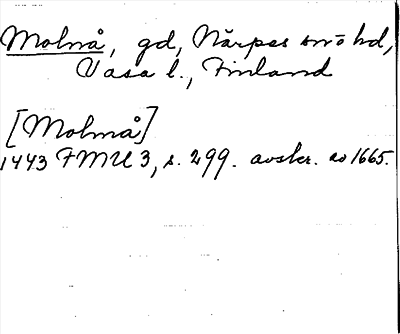 Molnå, gd, Närpes sn o hd,
Vasa l., Finland
[Molnå]
1443 FMU 3, s. 299. avskr. av 1665.